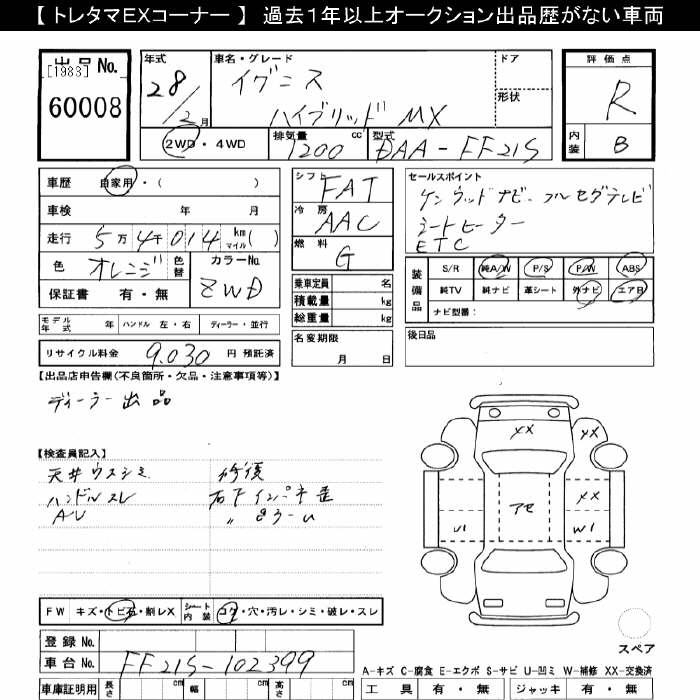 【 トレタマEXコーナー 】 過去1年以上オークション出品歴がない車両
出品 No. [1983] 60008
年式 28/2月
車名・グレード イグニス ハイブリッド MX
ドア
形状
評価点 R
内装 B
2WD・4WD
排気量 1200 cc
型式 DAA-FF21S
車歴 自家用・( )
車検 年 月
走行 5万4千014 km マイル( )
色 オレンジ 色替 カラーNo. ZWD
保証書 有・無
シフト FAT
冷房 AAC
燃料 G
乗車定員 名
積載量 kg
総重量 kg
セールスポイント
ケンウッドナビ・フルセグテレビ
シートヒーター
ETC
装備品
S/R 純A/W P/S P/W ABS
純TV 純ナビ 革シート 外ナビ エアB
ナビ型番:
モデル年式 年 ハンドル 左・右 ディーラー・並行
名変期限 月 日
後日品
リサイクル料金 9,030 円 預託済
【出品店申告欄(不良箇所・欠品・注意事項等)】
ディーラー出品
【検査員記入】
天井ウスシミ 修復
ハンドルスレ 右下インパネ歪
AU
XX XX
アセ XX
U1 W1
FW キズ・トビ石・削レX シート内装 コゲ・穴・汚レ・シミ・破レ・スレ
スペア
登録 No.
車台 No. FF21S-102399
A-キズ C-腐食 E-エクボ S-サビ U-凹ミ W-補修 XX-交換済
車庫証明用 長さ cm 幅 cm 高さ cm
工具 有・無 ジャッキ 有・無